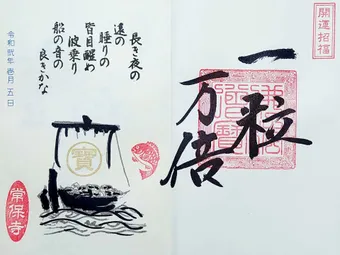 開運招福
一粒
万倍
長き夜の
遠の
睡りの
皆目醒め
波乗り
船の音の
良きかな
令和弐年 壱月 五日
寳
常保寺